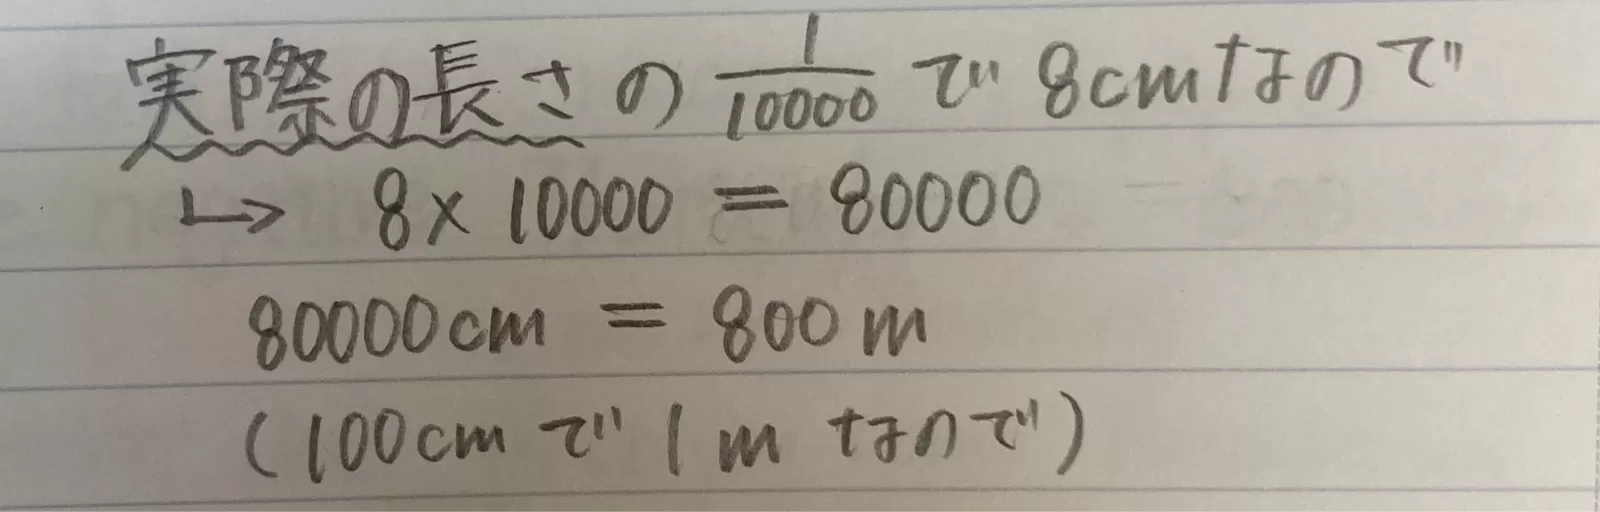 実際の長さの 1/10000 で 8cmなので
↳ 8×10000 = 80000
80000cm = 800m
(100cmで1mなので)